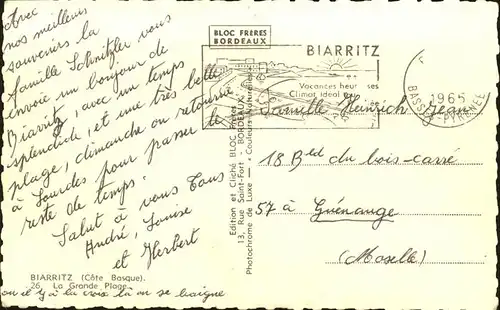 Avec
nos meilleurs
souvenirs la
famille Schnitzler vous
envoie un bonjour de
Biarritz, avec un temps
splendide, et une très belle
plage, dimanche on retourne
à Lourdes pour passer le
reste de temps.
Salut à vous Tous
André, Louise
et Herbert
BIARRITZ (Côte Basque).
26. La Grande Plage.
ou il y à la croix là on se baigne
Edition et Cliché BLOC Frères
13, Rue Saint-Fort - BORDEAUX
Photochrome de Luxe "Couleurs Naturelles"
BLOC FRERES
BORDEAUX
BIARRITZ
Vacances heur ses
Climat idéal
1965
BASSES-PYRENEES
Famille Heinrich Jean
18 Bled du bois-carré
57 à Guénange
(Moselle)